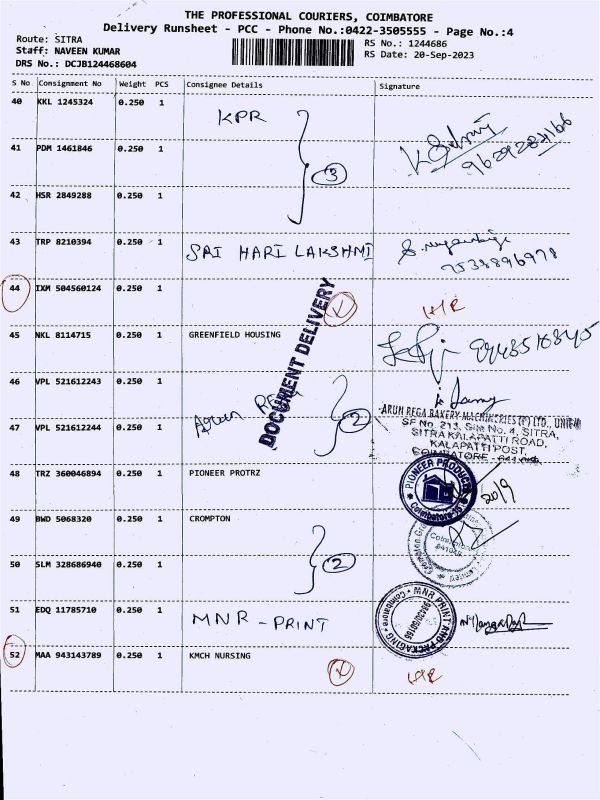 THE PROFESSIONAL COURIERS, COIMBATORE
Delivery Runsheet - PCC - Phone No.:0422-3505555 - Page No.:4
Route: SITRA
Staff: NAVEEN KUMAR
DRS No.: DCJB124468604
RS No.: 1244686
RS Date: 20-Sep-2023
S No Consignment No Weight PCS Consignee Details Signature
40 KKL 1245324 0.250 1 KPR
41 PDM 1461846 0.250 1 3 9629284166
42 HSR 2849288 0.250 1
43 TRP 8210394 0.250 1 SRI HARI LAKSHMI
44 IXM 504560124 0.250 1 H/R
DOCUMENT DELIVERY
45 NKL 8114715 0.250 1 GREENFIELD HOUSING
46 VPL 521612243 0.250 1 Arun
47 VPL 521612244 0.250 1 2
ARUN REGA BAKERY MACHINERIES (P) LTD.,
SF No. 213, Site No. 4, SITRA,
SITRA KALAPATTI ROAD,
KALAPATTI POST,
COIMBATORE -
48 TRZ 360046894 0.250 1 PIONEER PROTRZ
PIONEER PRODUCTS
20/9
49 BWD 5068320 0.250 1 CROMPTON
50 SLM 328686940 0.250 1 2
51 EDQ 11785710 0.250 1 MNR - PRINT
MNR PRINT AND PACKAGING
Coimbatore
52 MAA 943143789 0.250 1 KMCH NURSING H/R